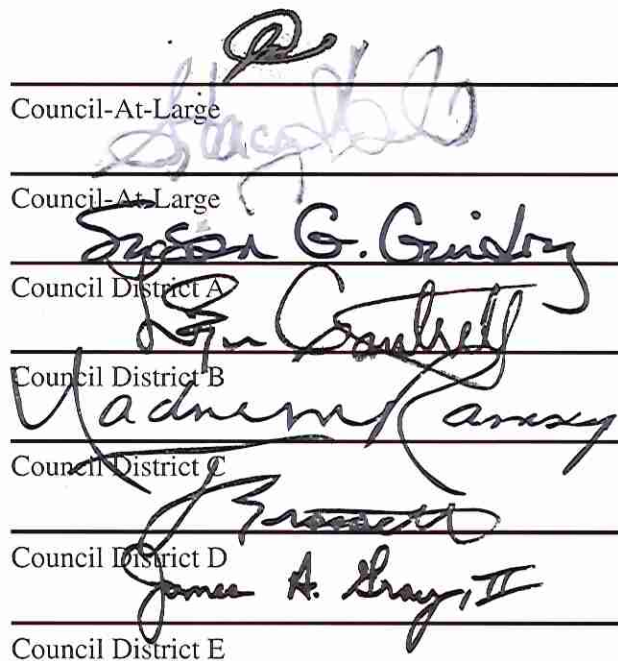 Council-At-Large
Stacy Head
Council-At-Large
Susan G. Guidry
Council District A
Council District B
Nadine M Ramsey
Council District C
J Brossett
Council District D
James A. Gray, II
Council District E